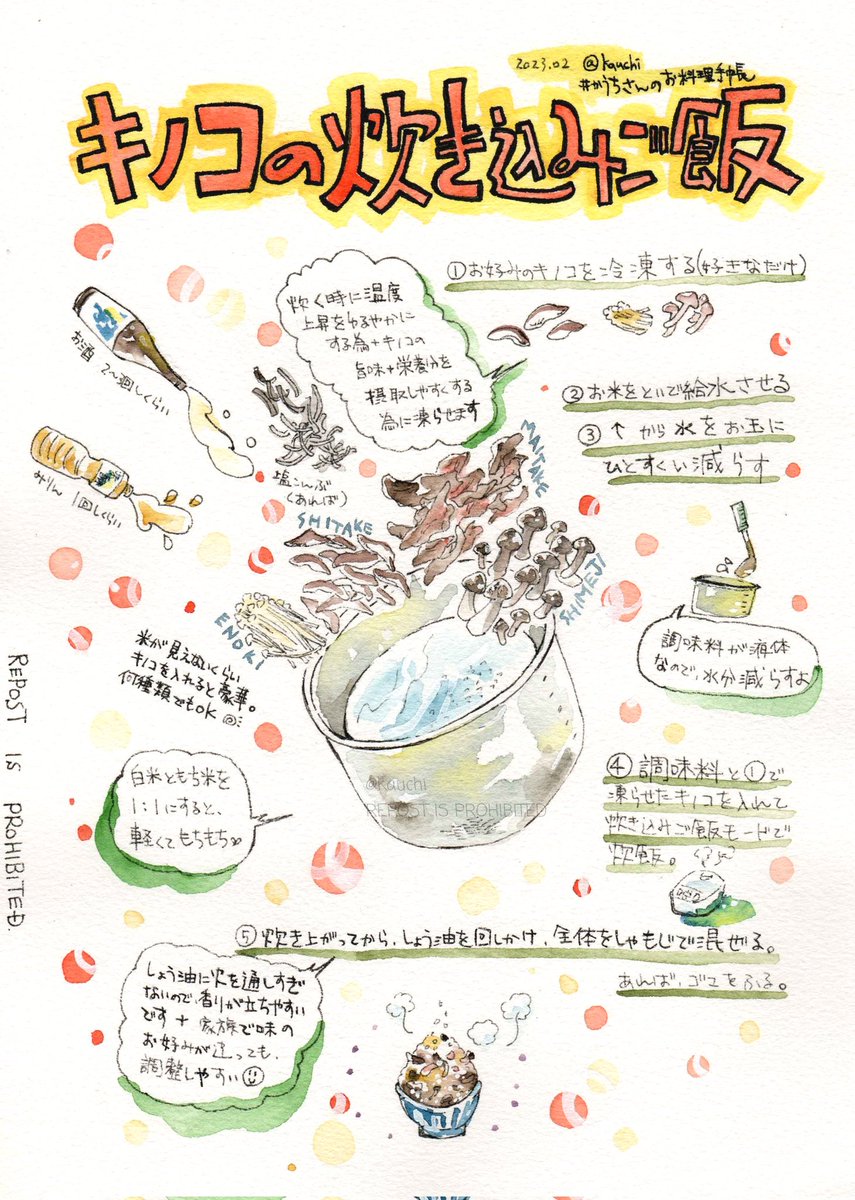 2023.02 @Kauchi
#かうちさんのお料理手帳
キノコの炊き込みご飯
①お好みのキノコを冷凍する(好きなだけ)
炊く時に温度
上昇をゆるやかに
する為+キノコの
旨味+栄養分を
摂取しやすくする
為に凍らせます
お酒 2〜回しくらい
みりん 1回しくらい
塩こんぶ
(あれば)
②お米をといで給水させる
③↑から水をお玉に
ひとすくい減らす
MAITAKE
SHITAKE
SHIMEJI
ENOKI
調味料が液体
なので、水分減らすよ
米が見えないくらい
キノコを入れると豪華。
何種類でもOK
@Kauchi
REPOST IS PROHIBITED
白米ともち米を
1:1にすると、
軽くてもちもち
④調味料と①で
凍らせたキノコを入れて
炊き込みご飯モードで
炊飯。
⑤炊き上がってから、しょう油を回しかけ、全体をしゃもじで混ぜる。
あれば、ゴマをふる。
しょう油に火を通しすぎ
ないので、香りが立ちやすい
です+家族で味の
お好みが違っても、
調整しやすい
REPOST IS PROHIBITED.